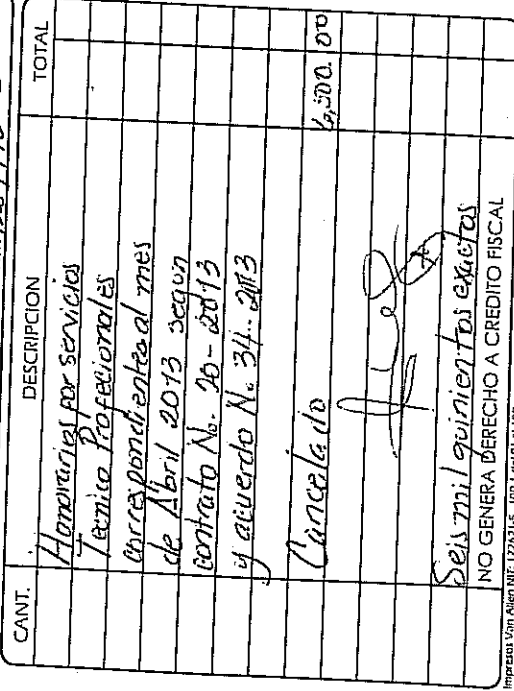 CANT. DESCRIPCION TOTAL
Honorarios por servicios
Tecnico Profecionales
correspondientes al mes
de Abril 2013 segun
contrato No. 20-2013
y acuerdo No. 34-2013
Cancelado
6,500.00
Seis mil quinientos exactos
NO GENERA DERECHO A CREDITO FISCAL
Impresos Van Allen NIT: